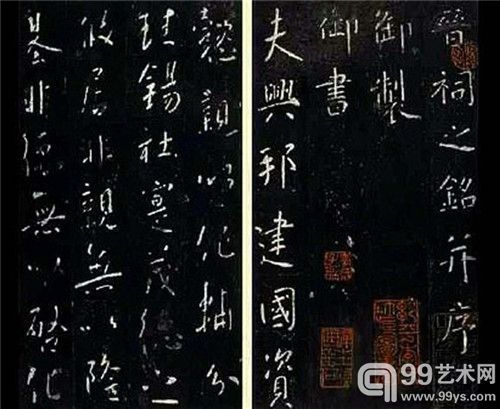 晉祠之銘并序
御製
御書
夫興邦建國資
懿親以作輔分
珪錫社寔茂德之
攸居非親無以隆
基非德無以啓化
99艺术网
www.99ys.com